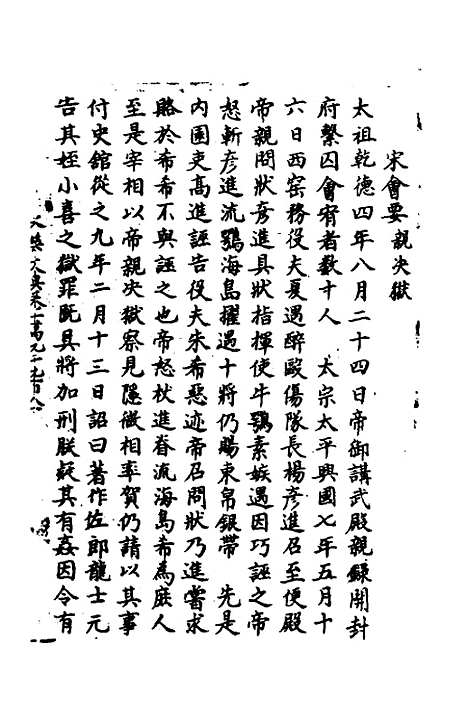 宋會要 親決獄
太祖乾德四年八月二十四日帝御講武殿親錄開封
府繫囚會宥者數十人 太宗太平興國七年五月十
六日西窑務役夫夏遇醉毆傷隊長楊彦進召至便殿
帝親問狀彦進具狀指揮使牛鶚素嫉遇因巧誣之帝
怒斬彦進流鶚海島擢遇十將仍賜束帛銀帶 先是
內園吏高進誣告役夫朱希惡迹帝召問狀乃進嘗求
賂於希希不與誣之也帝怒杖進眷流海島希為庶人
至是宰相以帝親決獄察見隱微相率賀仍請以其事
付史館從之九年二月十三日詔曰著作佐郎龍士元
告其姪小喜之獄罪既具將加刑朕疑其有姦因令有